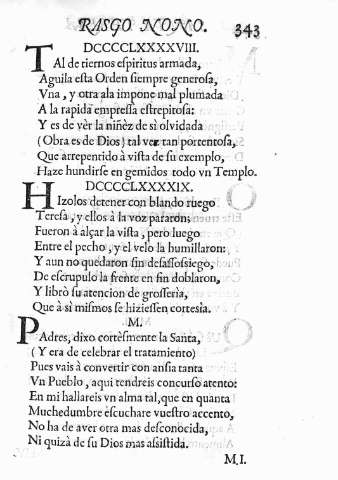 RASGO NONO. 343
DCCCCLXXXXVIII.
TAl de tiernos espiritus armada,
Aguila esta Orden siempre generosa,
Vna, y otra ala impone mal plumada
A la rapida empressa estrepitosa:
Y es de vèr la niñèz de sì olvidada
(Obra es de Dios) tal vez tan portentosa,
Que arrepentido à vista de su exemplo,
Haze hundirse en gemidos todo vn Templo.
DCCCCLXXXXIX.
HIzolos detener con blando ruego
Teresa, y ellos à la voz pararon;
Fueron à alçar la vista, pero luego
Entre el pecho, y el velo la humillaron:
Y aun no quedaron sin desassossiego,
De escrupulo la frente en sin doblaron,
Y librò su atencion de grosserìa,
Que à sì mismos se hiziessen cortesìa.
M.
PAdres, dixo cortèsmente la Santa,
(Y era de celebrar el tratamiento)
Pues vais à convertir con ansia tanta
Vn Pueblo, aqui tendreis concurso atento:
En mi hallareis vn alma tal, que en quanta
Muchedumbre escuchare vuestro accento,
No ha de aver otra mas desconocida,
Ni quizà de su Dios mas assistida.
M.I.